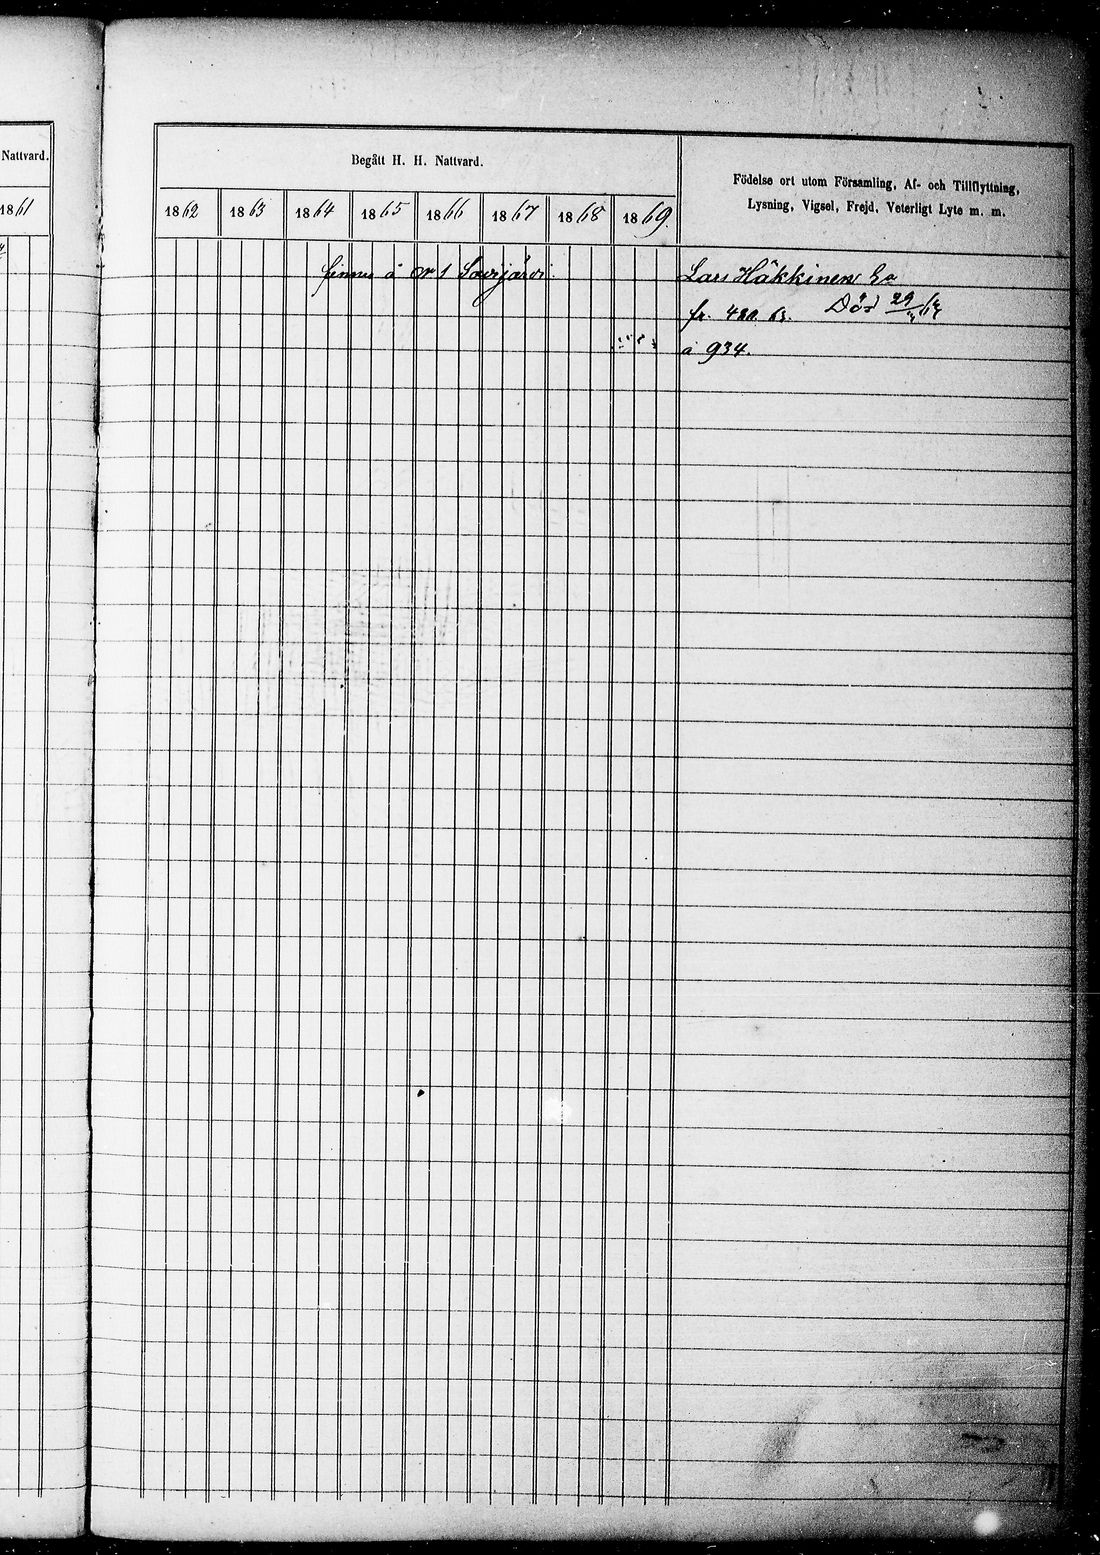 Nattvard.
1861
Begått H. H. Nattvard.
Födelse ort utom Församling, Af- och Tillflyttning,
Lysning, Vigsel, Frejd, Veterligt Lyte m. m.
1862 1863 1864 1865 1866 1867 1868 1869.
finnes å 1 Savijärvi. Lars Häkkinen
fr. 63. Död 29
å 934.